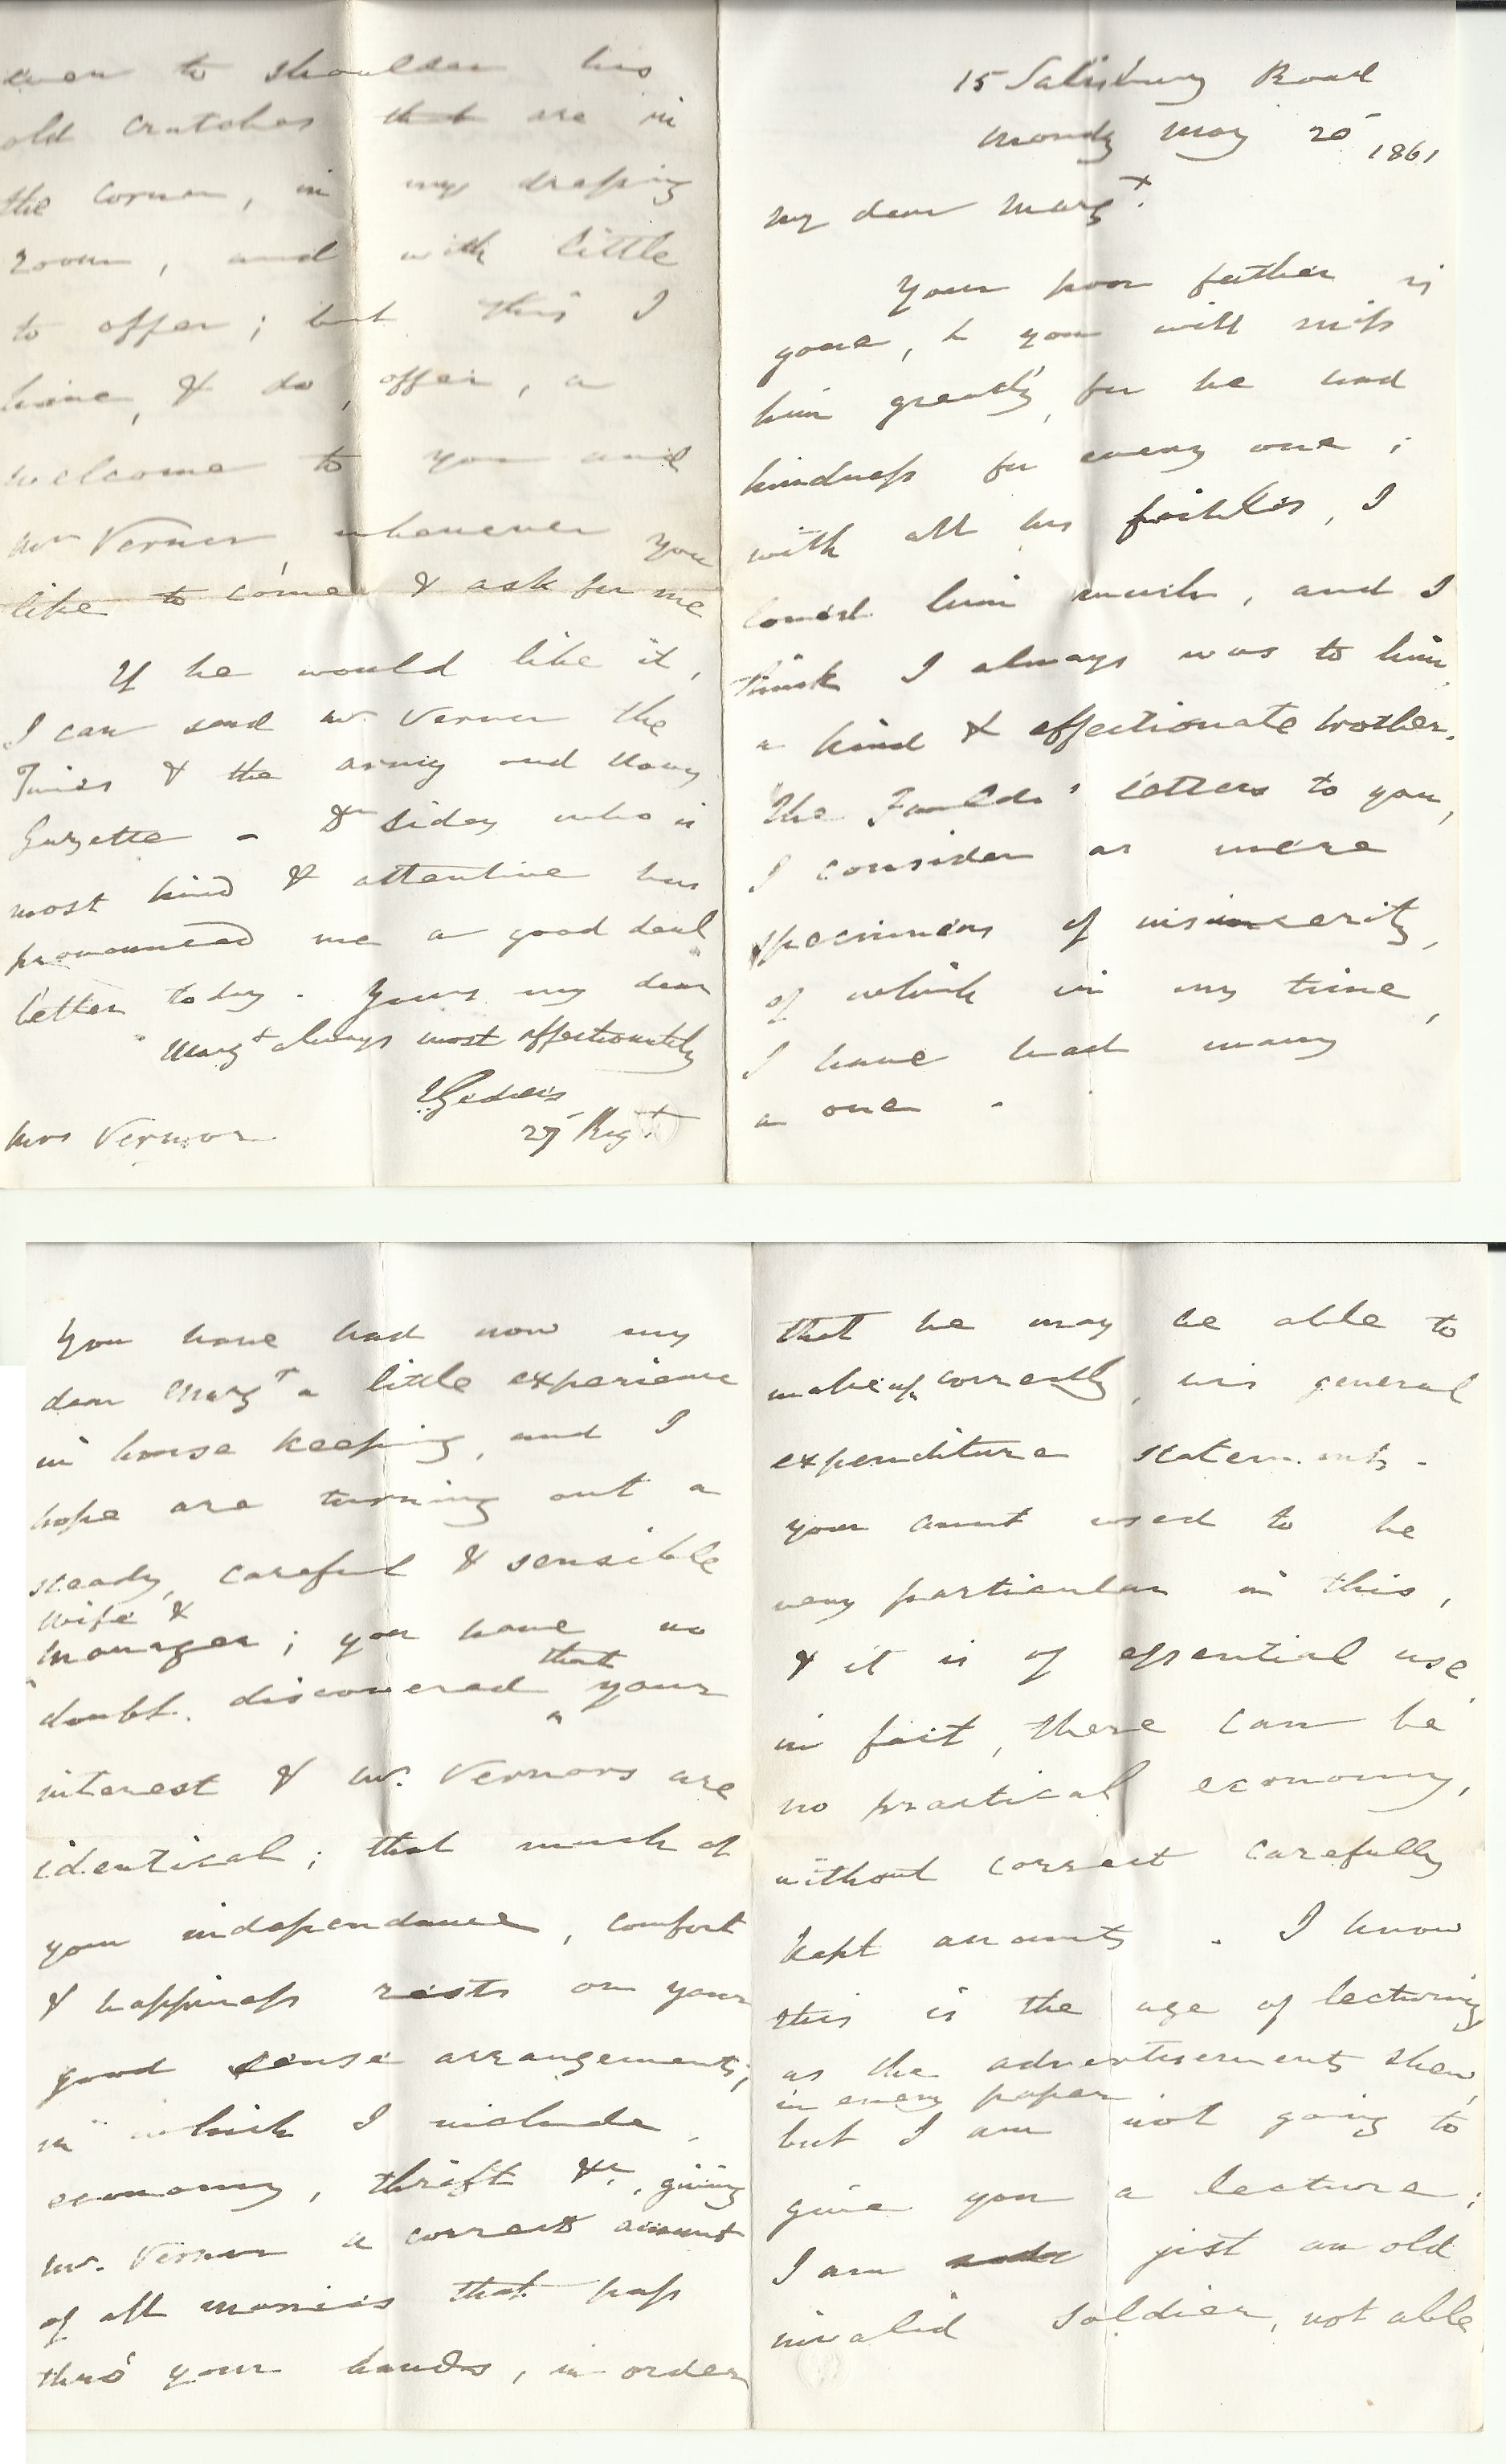 15 Salisbury Road
Monday May 20 1861
My dear Margt.
Your poor father is
gone, & you will miss
him greatly, for he had
kindness for every one;
with all his foibles, I
loved him much, and I
think I always was to him,
a kind & affectionate brother.
The Faulds' letters to you,
I consider as mere
specimens of insincerity,
of which in my time,
I have had many
a one -
You have had now my
dear Margt a little experience
in house keeping, and I
hope are turning out a
steady, careful & sensible
wife &
manager; you have no
doubt discovered that your
interest & Mr. Vernors are
identical; that much of
your independance, comfort
& happiness rests on your
good sense arrangements;
in which I include,
economy, thrift &c, giving
Mr. Vernor a correct account
of all monies that pass
thro' your hands, in order
that he may be able to
make up correctly, his general
expenditure statements -
your aunt used to be
very particular in this,
& it is of essential use,
in fact, there can be
no practical economy,
without correct carefully
kept accounts. I know
this is the age of lecturing
as the advertisements shew,
in every paper
but I am not going to
give you a lecture;
I am just an old
invalid soldier, not able
even to shoulder his
old crutches that are in
the corner, in my dressing
room, and with little
to offer; but this I
have, & do, offer, a
welcome to you and
Mr Vernor whenever you
like to come & ask for me
If he would like it,
I can send Mr. Vernor the
Times & the army and Navy
Gazette - Dr Sidey who is
most kind & attentive has
pronounced me a good deal
better today. Yours my dear
Margt always most affectionately
Geddes
27 Regt
Mrs Vernor